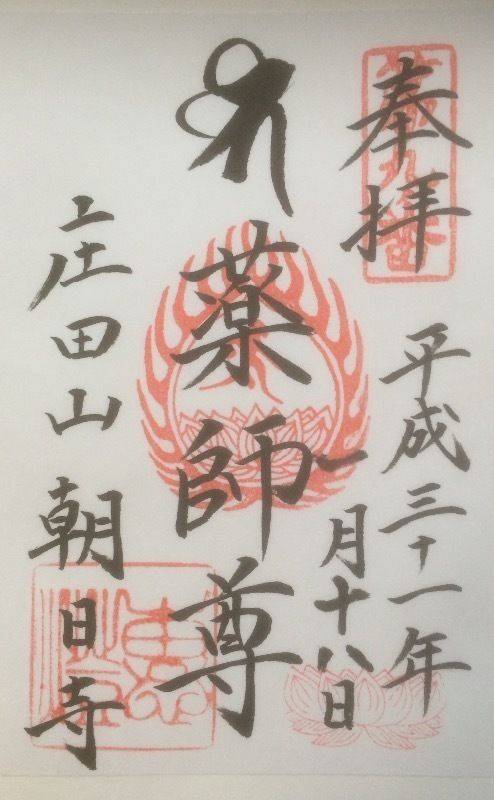 奉拝
平成三十一年
一月十八日
薬師尊
上庄田山 朝日寺